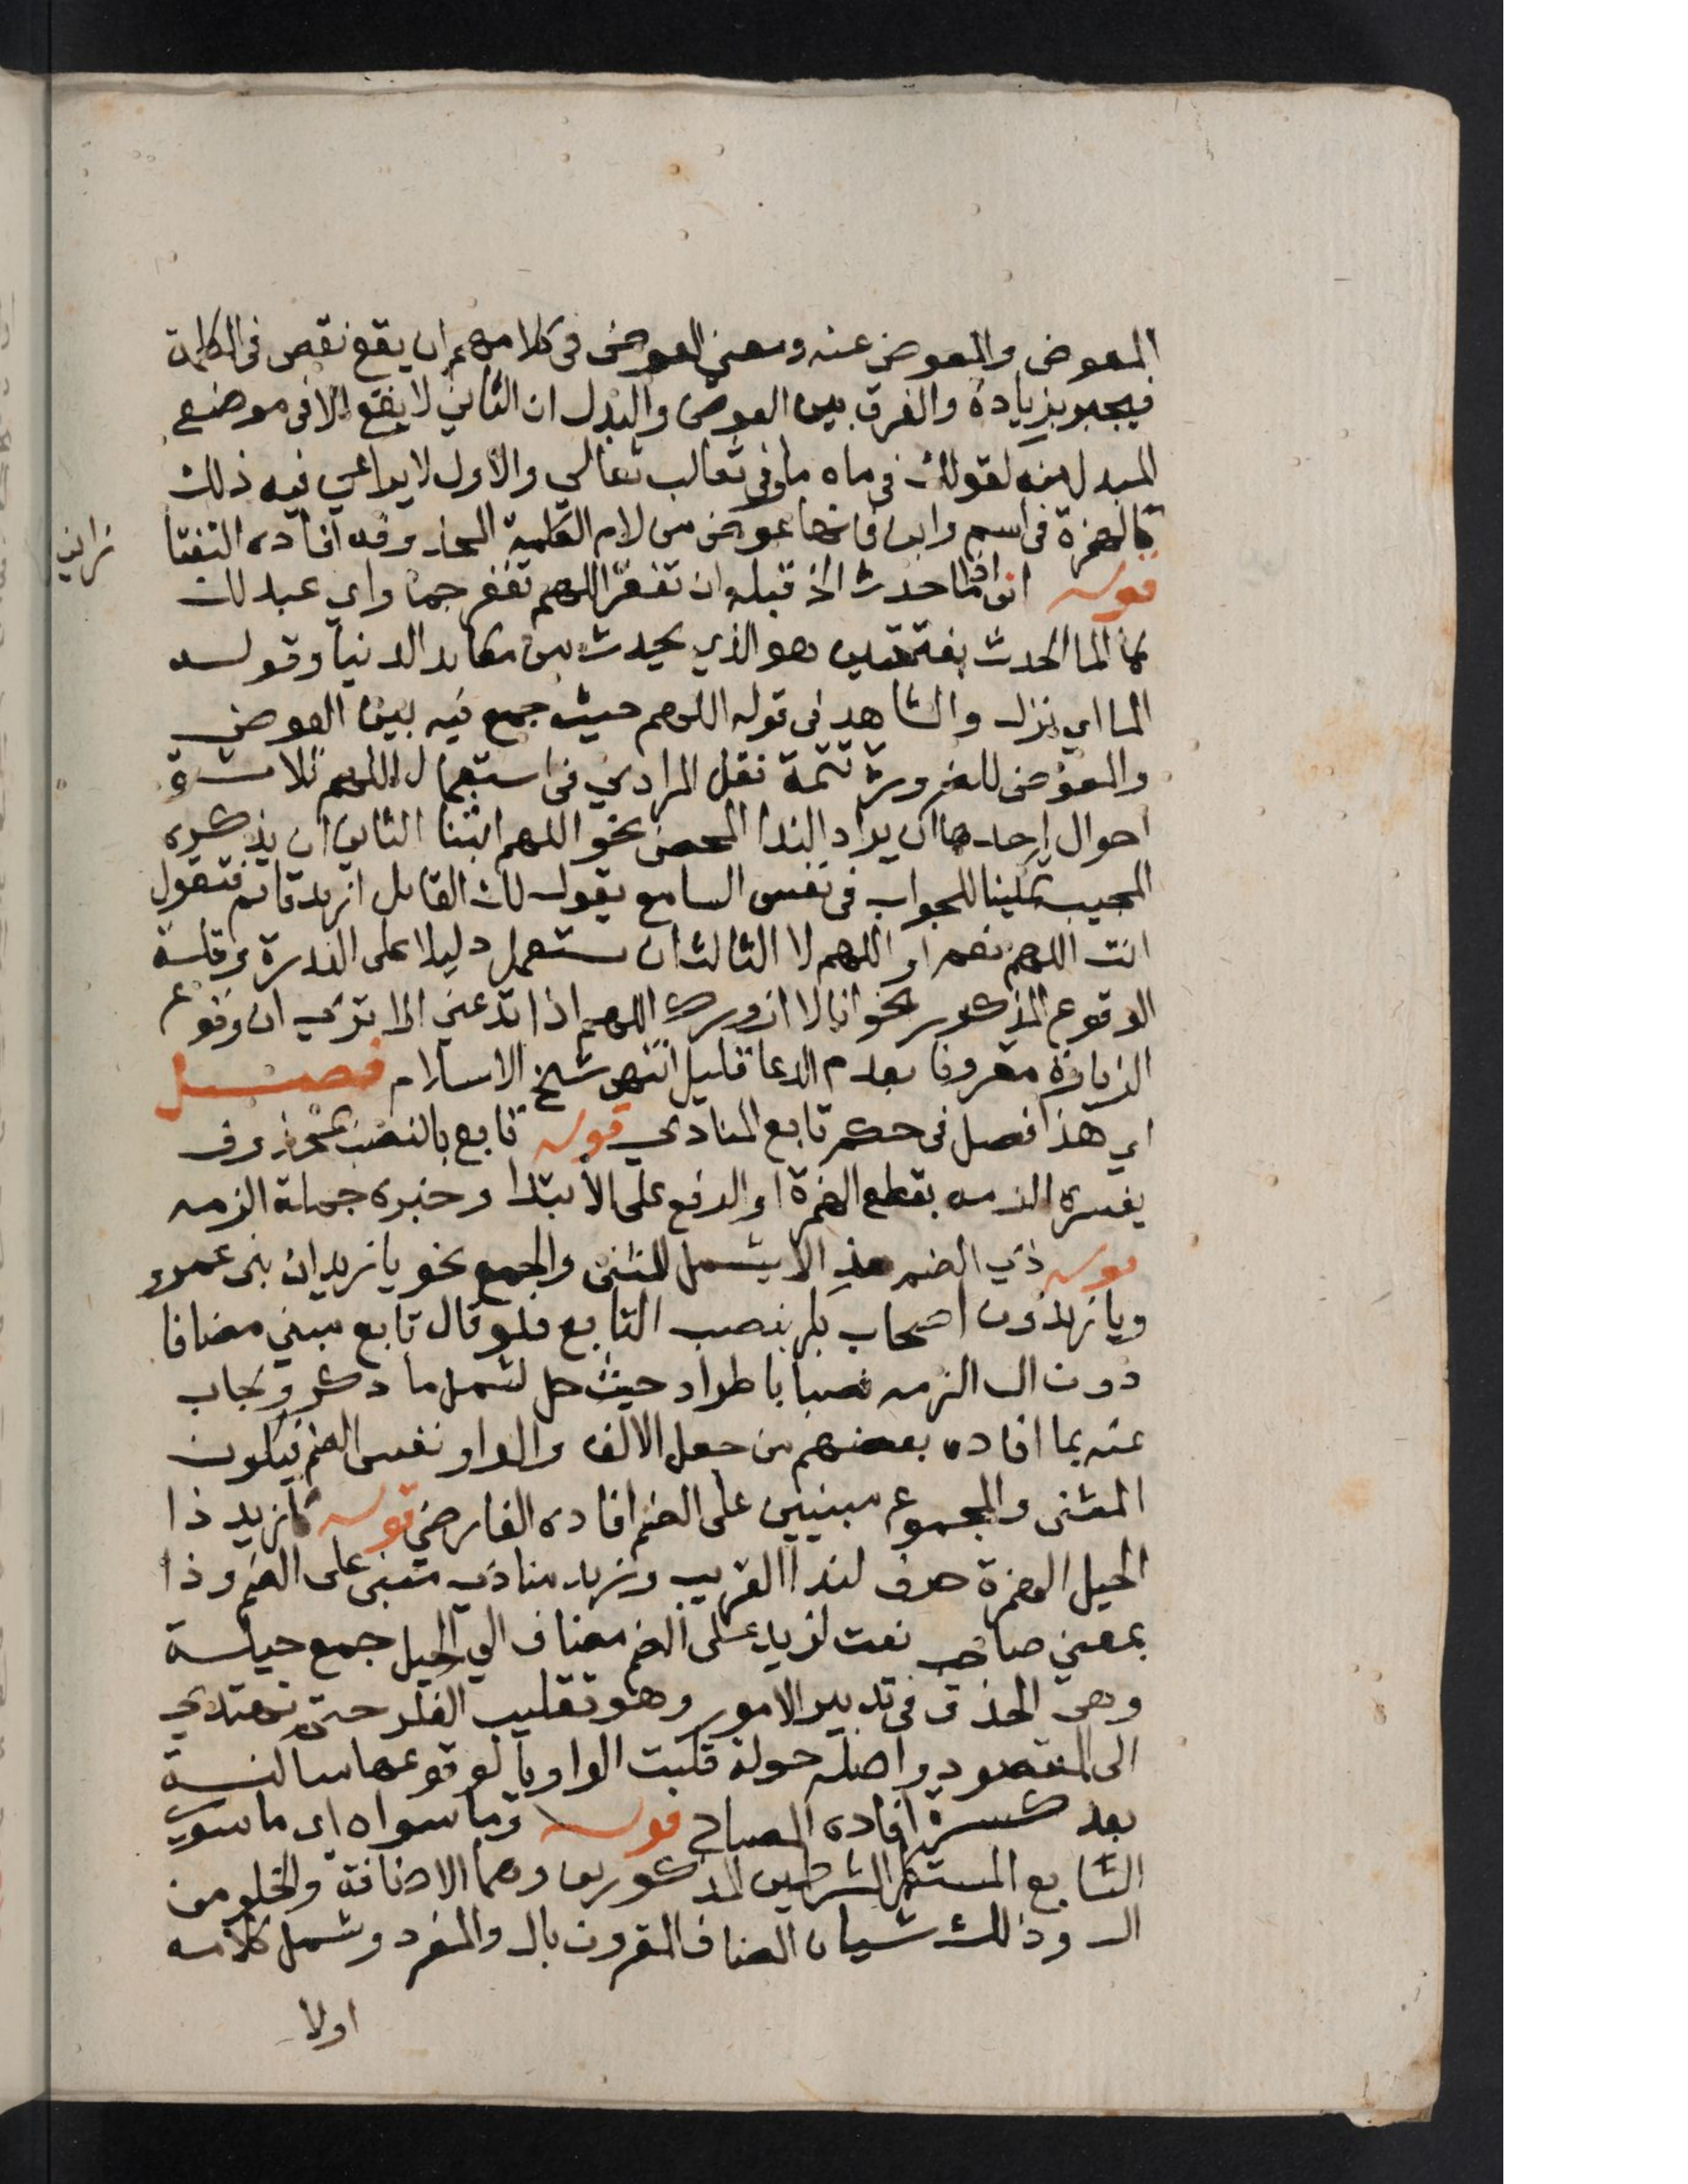 المعوض والمعوض عنه ومعنى العوض فى كلامهم ان يقع نقص فى الكلمة
فيجبر بزيادة والفرق بين العوض والبدل ان الثاني لا يقع الا فى موضع
المبدل منه كقولك فى ماه ما وفى ثعالب ثعالي والاول لا يراعي فيه ذلك
كالهمزة فى اسم وابن فانها عوض من لام الكلمة المحذوفه افاده التفتا
زاني
قوله اني اذا ما حدث الخ قبله ان تغفر اللهم تغفر جما واي عبد لك
ما الما الحدث بفتحتين هو الذي يحدث من مكايد الدنيا وقوله
الما اي نزل والشاهد فى قوله اللهم حيث جمع فيه بين العوض
والمعوض للضرورة تتمة نقل المرادي فى استعمال اللهم ثلاثة
احوال احدها ان يراد الندا المحض نحو اللهم اثبنا الثاني ان يذكره
المجيب تمكينا للجواب فى نفس السامع يقول لك القائل ازيد قائم فتقول
انت اللهم نعم او اللهم لا الثالث ان يستعمل دليلا على الندرة وقلة
الوقوع المذكور نحو انا لا ازورك اللهم اذا تدعني الا تري ان وقوع
الزيارة مقرونا بعدم الدعا قليل انتهى شيخ الاسلام فصل
اي هذا فصل فى حكم تابع المنادي قوله تابع بالنصب بمحذوف
يفسره الزمه بقطع الهمزة او الرفع على الابتدا وخبره جملة الزمه
قوله ذي الضم هذا لا يشمل المثنى والجمع نحو يا زيدان بنى عمرو
ويا زيدون اصحاب بكر بنصب التابع فلو قال تابع مبني مضافا
دون ال الزمه نصبا باطراد حيث حل لشمل ما ذكر ويجاب
عنه بما افاده بعضهم من جعل الالف والواو نفس الضم فيكون
المثنى والمجموع مبنيين على الضم افاده الفارضي قوله كازيد ذا
الحيل الهمزة حرف لندا القريب وزيد منادي مبنى على الضم وذا
بمعني صاحب نعت لزيد على الضم مضاف الي الحيل جمع حيلة
وهى الحذق فى تدبير الامور وهو تقليب الفكر حتى تهتدي
الى المقصود واصله حولة قلبت الواو يا لوقوعها ساكنة
بعد كسرة افاده المصباح قوله وما سواه اي ما سوي
التابع المستكمل الشرطين المذكورين وهما الاضافة والخلو من
ال وذلك شيان المضاف المقرون بال والمفرد وشمل كلامه
اولا